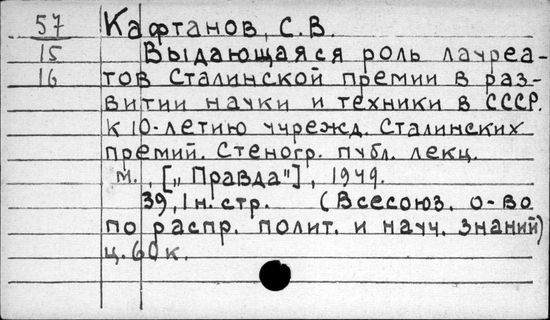 57 Кафтанов, С.В.
15 Выдающаяся роль лауреа-
16 тов Сталинской премии в раз-
витии науки и техники в СССР.
К 10-летию учрежд. Сталинских
премий. Стеногр. публ. лекц.
М., [„Правда"], 1949.
39, 1 н. стр. (Всесоюз. о-во
по распр. полит. и науч. знаний)
ц. 60 к.